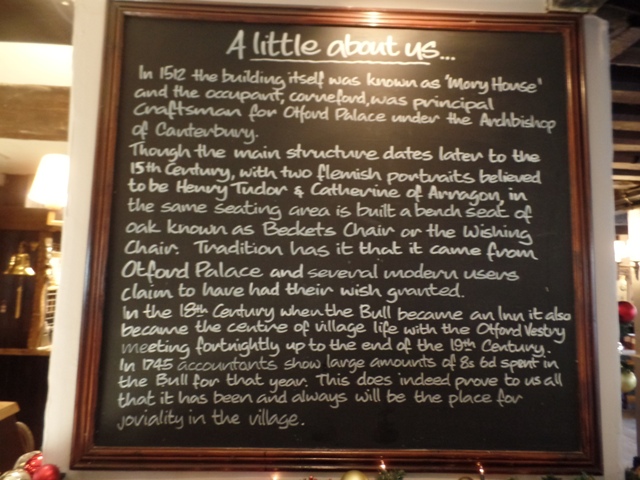 A little about us...
In 1512 the building itself was known as 'Mory House'
and the occupant, corneford, was principal
Craftsman for Otford Palace under the Archbishop
of Canterbury.
Though the main structure dates later to the
15th Century, with two flemish portraits believed
to be Henry Tudor & Catherine of Arragon, in
the same seating area is built a bench seat of
oak known as Beckets Chair or the Wishing
Chair. Tradition has it that it came from
Otford Palace and several modern users
claim to have had their wish granted.
In the 18th Century when the Bull became an Inn it also
became the centre of village life with the Otford Vestry
meeting fortnightly up to the end of the 19th Century.
In 1745 accountants show large amounts of 8s 6d spent in
the Bull for that year. This does indeed prove to us all
that it has been and always will be the place for
joviality in the village.